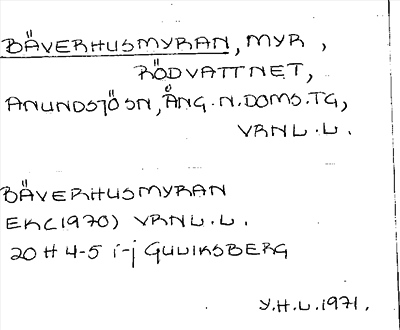 BÄVERHUSMYRAN, MYR,
RÖDVATTNET,
ANUNDSJÖSN, ÅNG. N. DOMS. TG,
VRNL. L.
BÄVERHUSMYRAN
EK(1970) VRNL. L.
20 H 4-5 i-j GULIKSBERG
Y. H. L. 1971.